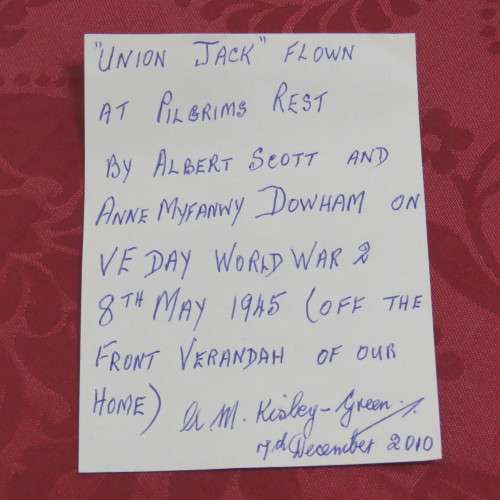 "UNION JACK" FLOWN
AT PILGRIMS REST
BY ALBERT SCOTT AND
ANNE MYFANWY DOWHAM ON
VE DAY WORLD WAR 2
8TH MAY 1945 (OFF THE
FRONT VERANDAH OF OUR
HOME) M. Kisbey-Green.
December 2010